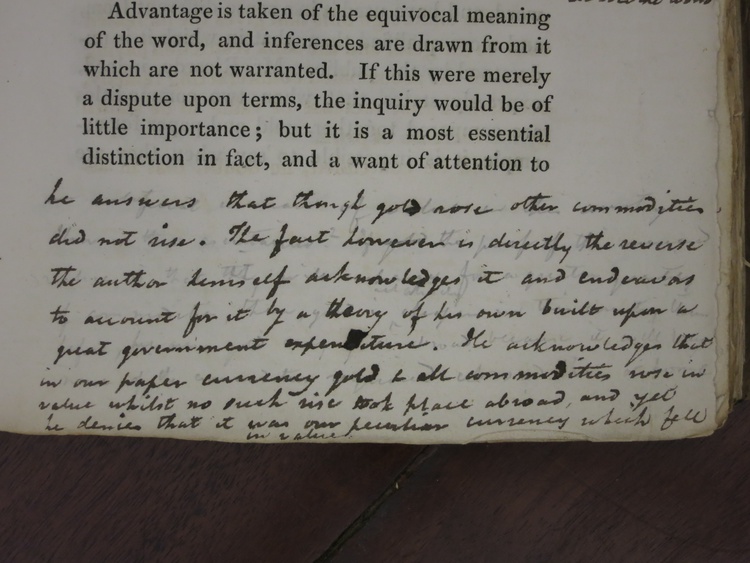 Advantage is taken of the equivocal meaning
of the word, and inferences are drawn from it
which are not warranted. If this were merely
a dispute upon terms, the inquiry would be of
little importance; but it is a most essential
distinction in fact, and a want of attention to
he answers that though gold rose other commodities
did not rise. The fact however is directly the reverse
the author himself acknowledges it and endeavors
to account for it by a theory of his own built upon a
great government expenditure. He acknowledges that
in our paper currency gold & all commodities rose in
value whilst no such rise took place abroad, and yet
he denies that it was our peculiar currency which fell
in value.